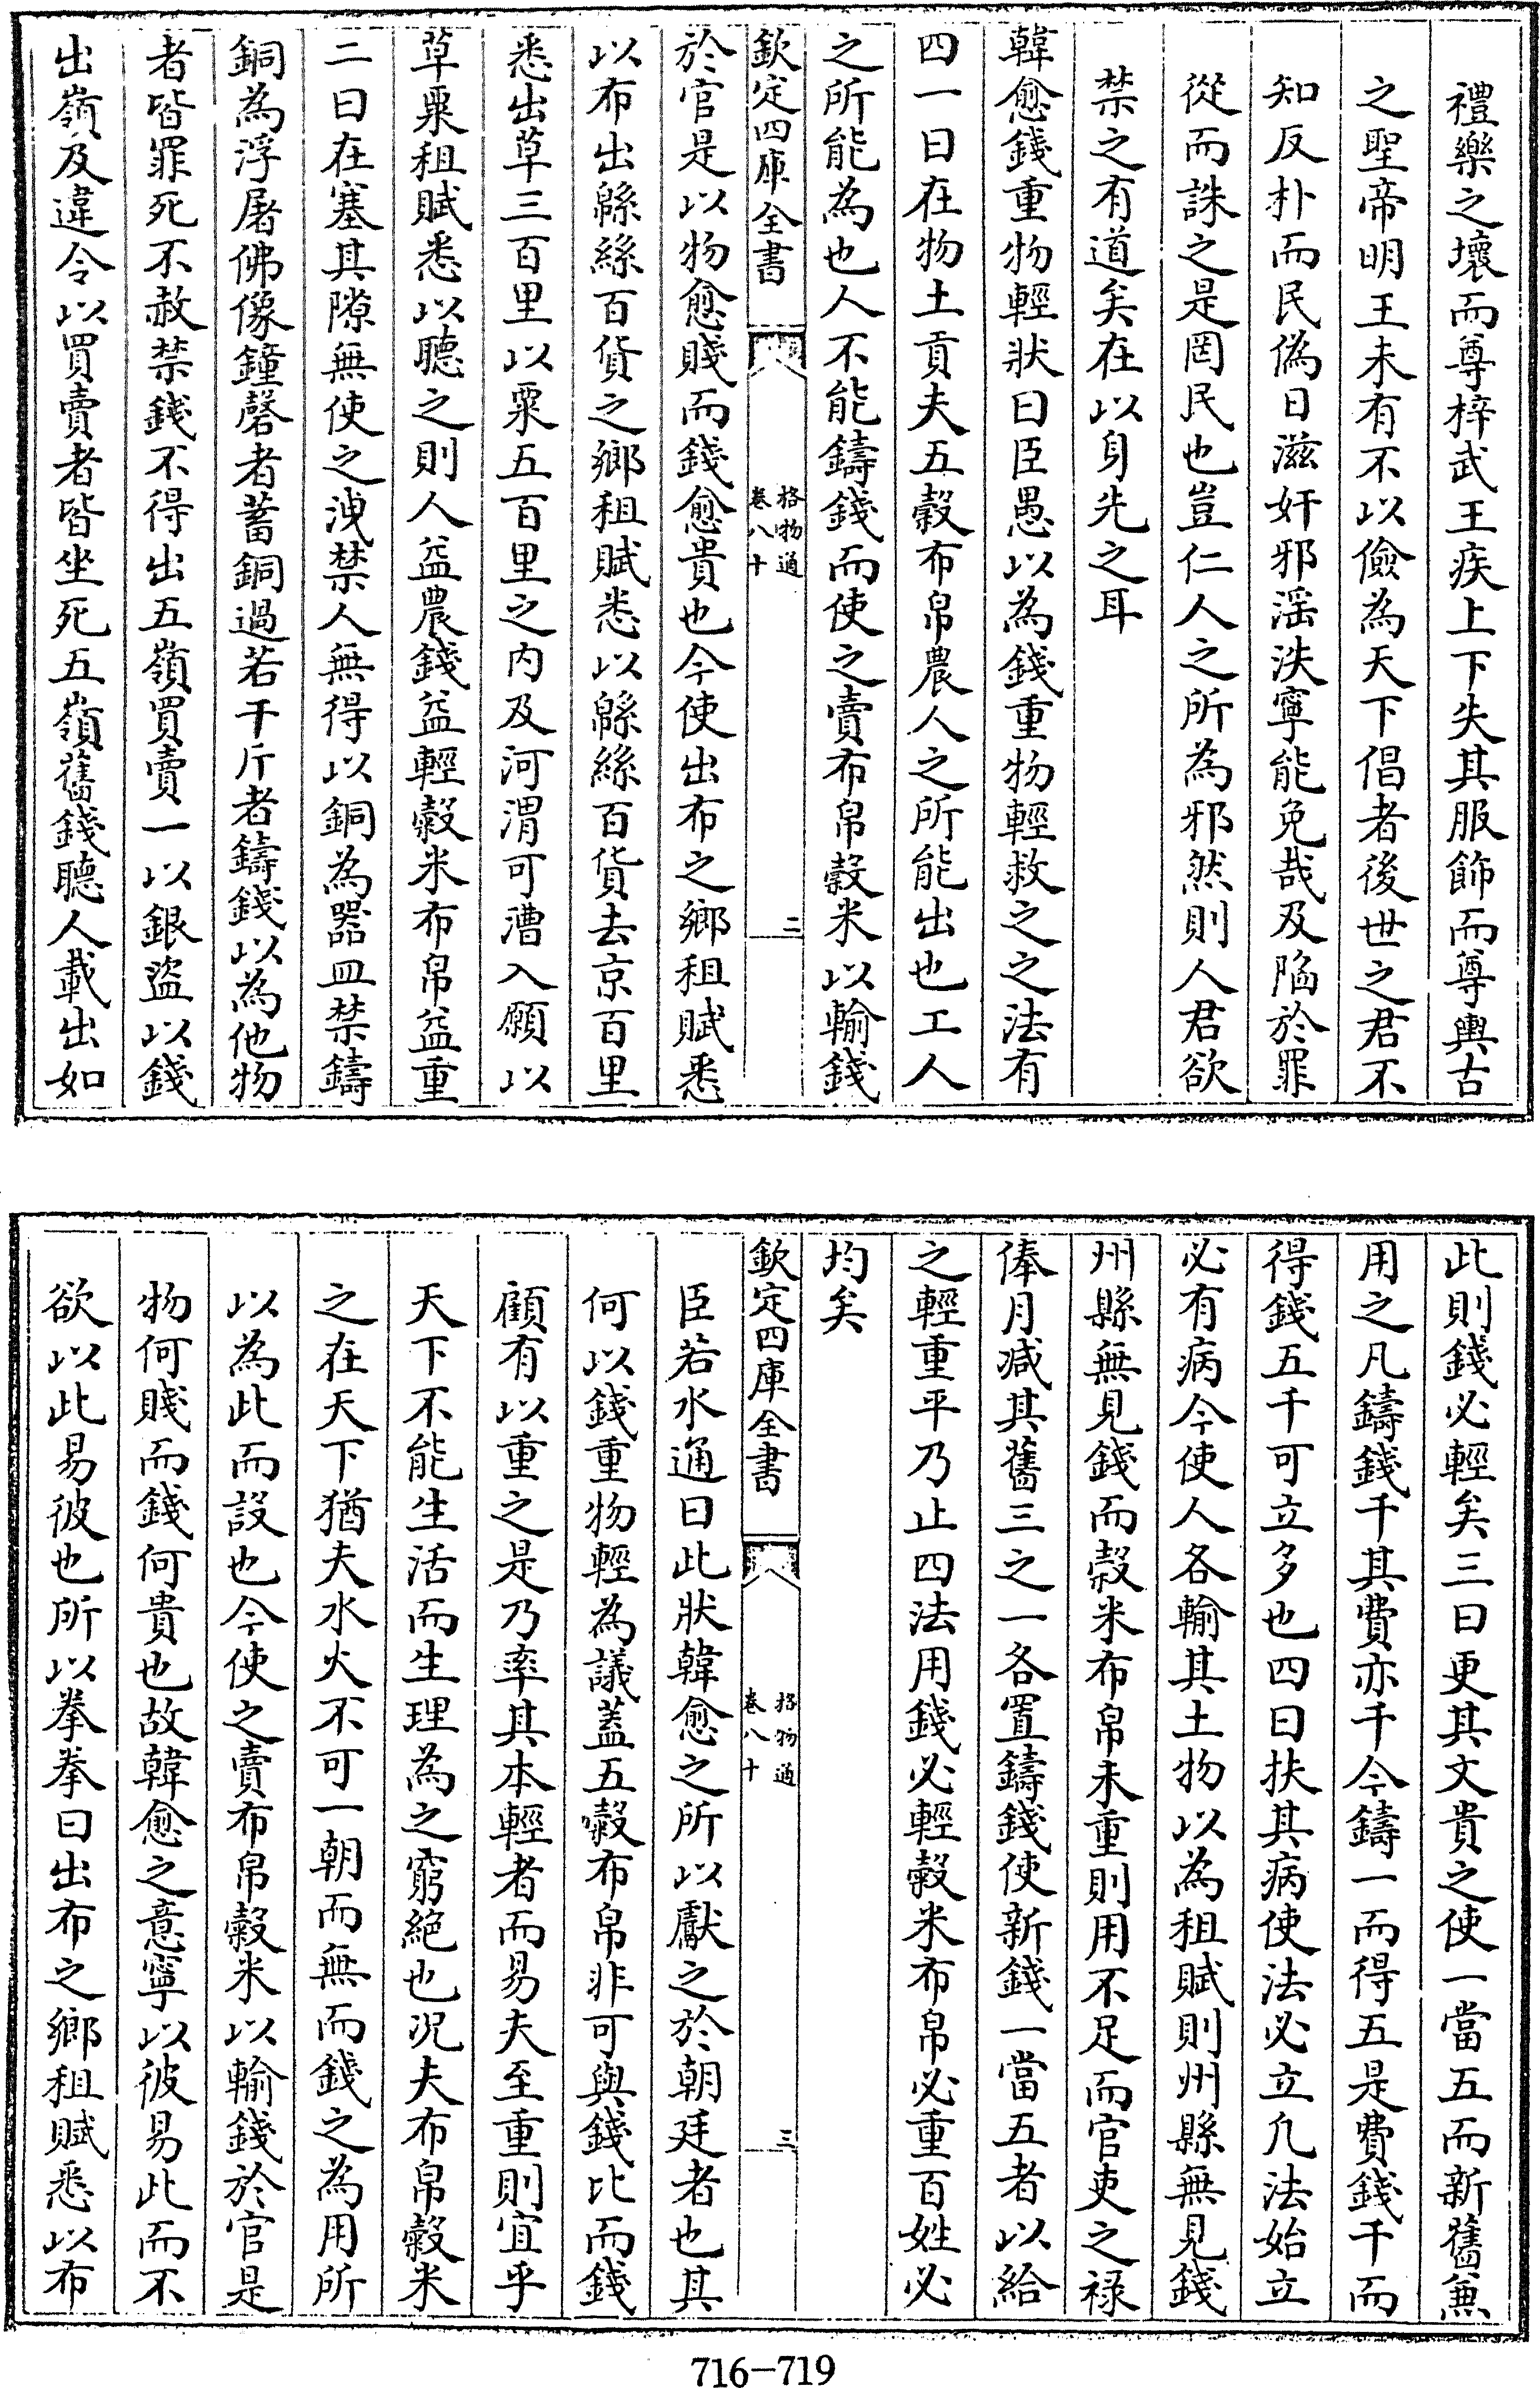 禮樂之壞而尊梓武王疾上下失其服飾而尊輿古
之聖帝明王未有不以儉為天下倡者後世之君不
知反朴而民偽日滋奸邪滛泆寧能免哉及陷於罪
從而誅之是罔民也豈仁人之所為邪然則人君欲
禁之有道矣在以身先之耳
韓愈錢重物輕狀曰臣愚以為錢重物輕救之之法有
四一曰在物土貢夫五穀布帛農人之所能出也工人
之所能為也人不能鑄錢而使之賣布帛穀米以輸錢
欽定四庫全書
格物通
卷八十
二
於官是以物愈賤而錢愈貴也今使出布之鄉租賦悉
以布出緜絲百貨之鄉租賦悉以緜絲百貨去京百里
悉出草三百里以粟五百里之内及河渭可漕入願以
草粟租賦悉以聽之則人益農錢益輕穀米布帛益重
二曰在塞其隙無使之洩禁人無得以銅為器皿禁鑄
銅為浮屠佛像鐘磬者蓄銅過若干斤者鑄錢以為他物
者皆罪死不赦禁錢不得出五嶺買賣一以銀盜以錢
出嶺及違令以買賣者皆坐死五嶺舊錢聽人載出如
此則錢必輕矣三曰更其文貴之使一當五而新舊兼
用之凡鑄錢千其費亦千今鑄一而得五是費錢千而
得錢五千可立多也四曰扶其病使法必立凡法始立
必有病今使人各輸其土物以為租賦則州縣無見錢
州縣無見錢而穀米布帛未重則用不足而官吏之禄
俸月減其舊三之一各置鑄錢使新錢一當五者以給
之輕重平乃止四法用錢必輕穀米布帛必重百姓必
均矣
欽定四庫全書
格物通
卷八十
三
臣若水通曰此狀韓愈之所以獻之於朝廷者也其
何以錢重物輕為議蓋五穀布帛非可與錢比而錢
顧有以重之是乃率其本輕者而易夫至重則宜乎
天下不能生活而生理為之窮絶也況夫布帛穀米
之在天下猶夫水火不可一朝而無而錢之為用所
以為此而設也今使之賣布帛穀米以輸錢於官是
物何賤而錢何貴也故韓愈之意寧以彼易此而不
欲以此易彼也所以拳拳曰出布之鄉租賦悉以布
716-719